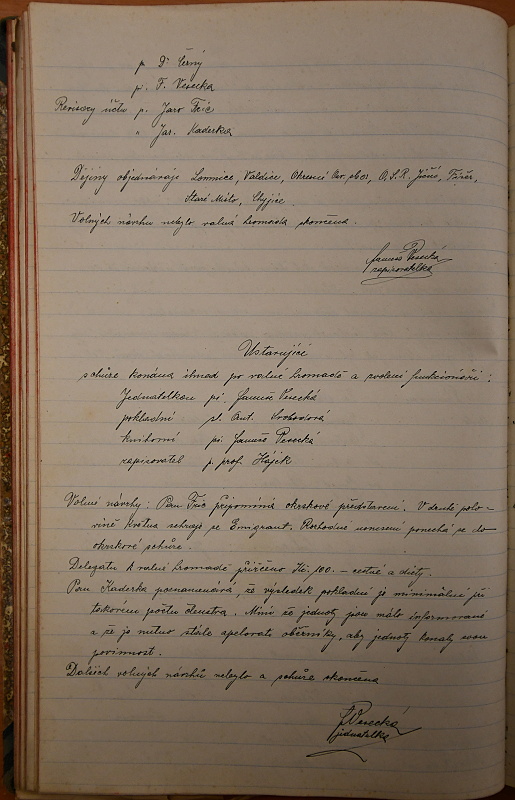 p. Dr Černý
p. F. Vesecká
Revisory účtu p. Jaro Fric
" Jar. Kaderka
Dějiny objednávaje Lomnice, Valdice, O.S.R. Jičín,
Staré Místo,
Volných návrhu nebylo valná hromada skončena.
Vesecká
zapisovatelka
Ustavující
schůze konána ihned po valné hromadě a zvoleni funkcionáři:
Jednatelkou pí. Vesecká
pokladní sl. Ant. Svobodová
knihovní pí. Pesecká
zapisovatel p. prof. Hájek
Volné návrhy: Pan Fric připomíná okrskové představení. V druhé polo-
vině května sehraje se Emigrant. Rozhodné usnesení ponechá se do
okrskové schůze.
Delegátu k valné hromadě přiřčeno Kč. 100.- cestné a diety.
Pan Kaderka poznamenává, že výsledek pokladní je minimální při
takovém počtu členstva. Míní že jednoty jsou málo informované
a že je nutno stále apelovati oběžníky, aby jednoty konaly svou
povinnost.
Dalších volných návrhů nebylo a schůze skončena
Pesecká
jednatelka